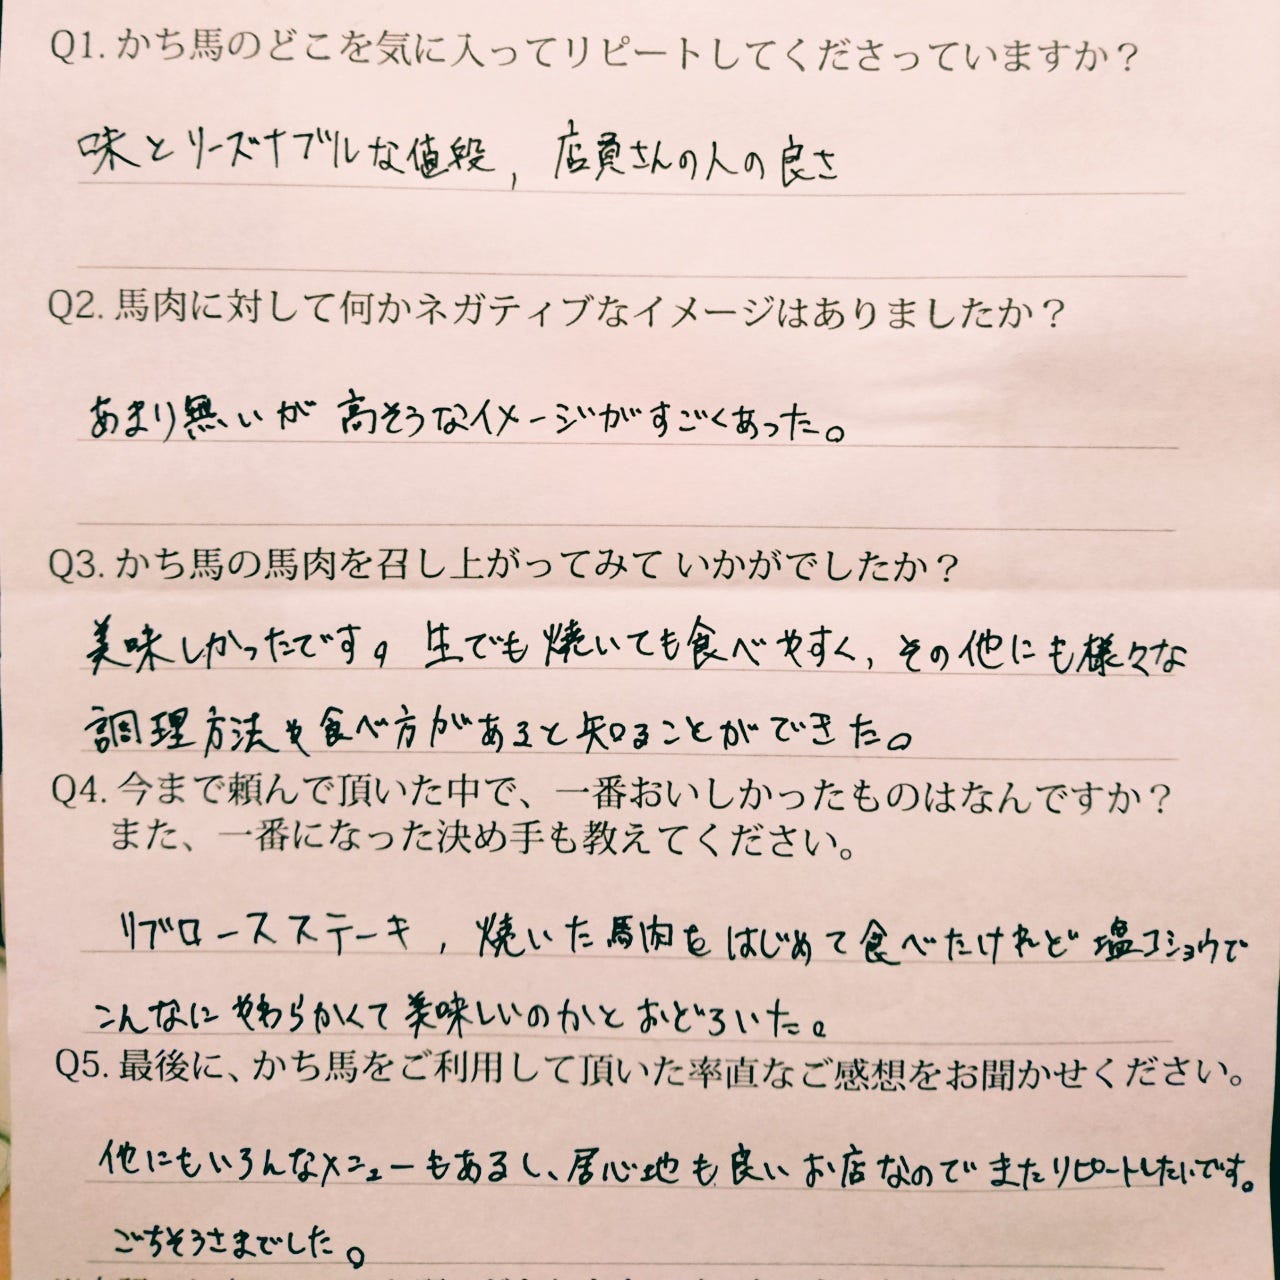 Q1. かち馬のどこを気に入ってリピートしてくださっていますか？
味とリーズナブルな値段, 店員さんの人の良さ
Q2. 馬肉に対して何かネガティブなイメージはありましたか？
あまり無いが 高そうなイメージがすごくあった。
Q3. かち馬の馬肉を召し上がってみて いかがでしたか？
美味しかったです。生でも焼いても食べやすく, その他にも様々な
調理方法や食べ方があると知ることができた。
Q4. 今まで頼んで頂いた中で、一番おいしかったものはなんですか？
また、一番になった決め手も教えてください。
リブロースステーキ, 焼いた馬肉をはじめて食べたけれど 塩コショウで
こんなにやわらかくて美味しいのかとおどろいた。
Q5. 最後に、かち馬をご利用して頂いた率直なご感想をお聞かせください。
他にもいろんなメニューもあるし、居心地も良いお店なのでまたリピートしたいです。
ごちそうさまでした。